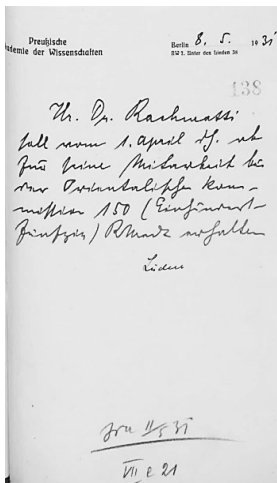 Preußische
Akademie der Wissenschaften
Berlin 8. 5. 1931
NW 7, Unter den Linden 38
138
Hr. Dr. Rachmatti
soll vom 1. April d. J. ab
für seine Mitarbeit bei
der Orientalischen Kom-
mission 150 (Einhundert-
fünfzig) RMark erhalten
Lüders
II/5 31
VII e 21